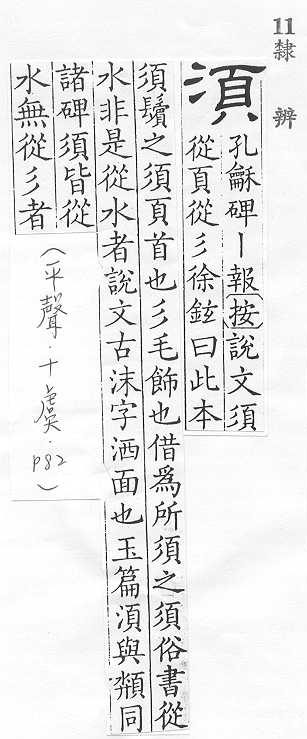 11隸辨
湏
孔龢碑丨報按說文須
從頁從彡徐鉉曰此本
須鬢之須頁首也彡毛飾也借爲所須之須俗書從
水非是從水者說文古沬字洒面也玉篇湏與頮同
諸碑須皆從
水無從彡者
（平聲．十虞．P82）